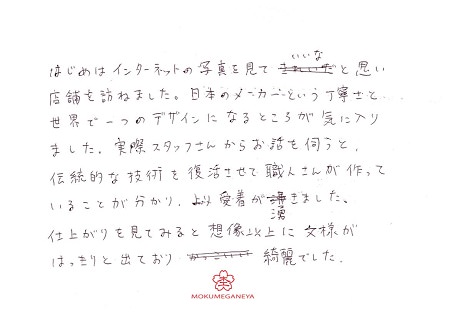 はじめはインターネットの写真を見ていいなと思い
店舗を訪ねました。日本のメーカーという丁寧さと、
世界で一つのデザインになるところが気に入り
ました。実際スタッフさんからお話を伺うと、
伝統的な技術を復活させて職人さんが作って
いることが分かり、より愛着が湧きました。
仕上がりを見てみると想像以上に文様が
はっきりと出ており 綺麗でした。
MOKUMEGANEYA